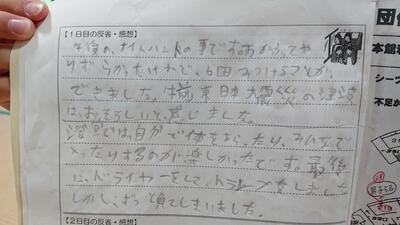 【1日目の反省・感想】
午後の、ナイトハントの事ですすべ
りずらかったけれど、6回みつけることが
できました。東日本大震災の津波
は、おそろしいと、感じました。
浴室では、自分で体をあらったり、みんなで
入ったりするのが楽しかったです。最後
に、ドライヤーをして、トランプをしました
しかし、ずっと負けてしまいました。
【2日目の反省・感想】
団体
本館
シーツ
不足か
男子5名